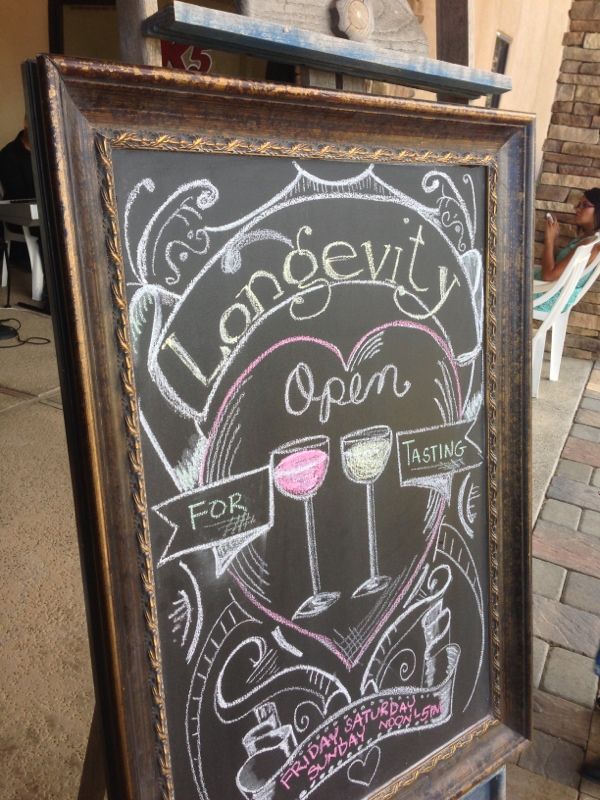 K5
Longevity
Open
FOR
TASTING
FRIDAY SATURDAY
SUNDAY NOON-5PM